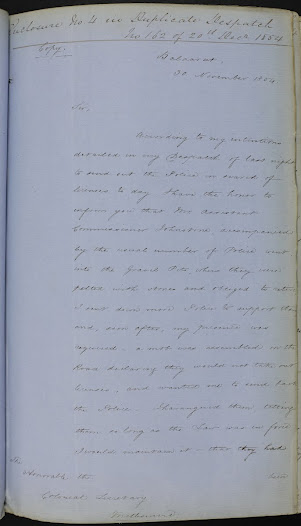 Enclosure No. 4 in Duplicate Despatch
No. 162 of 20th Decr 1854
Copy.
Ballaarat.
30 November 1854
Sir,
According to my intentions
detailed in my Despatch of last night
to send out the Police in search of
licenses to day I have the honor to
inform you that Mr Assistant
Commissioner Johnstone accompanied
by the usual number of Police went
into the Gravel Pits, when they were
pelted with stones and obliged to retire
I sent down more Police to support them
and, soon after, my presence was
required - a mob was assembled on the
Road declaring they would not take out
licenses, and wanted me to send back
the Police. I harangued them telling
them as long as the Law was in force
I would maintain it - that they had
been
The
Honorable the
Colonial Secretary
Melbourne